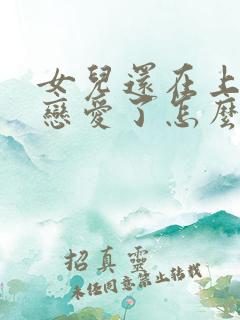 女兒還在上
戀愛了怎麼
招真靈
未經同意禁止轉載